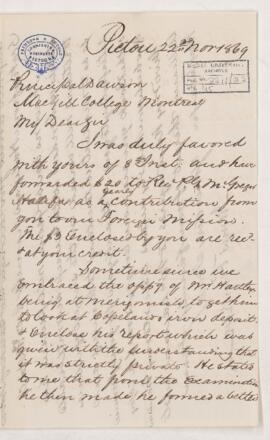 Pictou 22nd Nov 1869
Principal Dawson
MacGill College Montreal
My Dear Sir
I was duly favored
with yours of 8 Inst. and have
forwarded $20 to Rev. P. G. McGregor
yearly
Halifax as a contribution from
you to our Foreign Mission.
The $3 enclosed by you are recd
& at your credit.
Sometime since we
embraced the oppy of Mr Hartley
being at Merigomish to get him
to look at Copeland's iron deposit
& Enclose his report which was
given with the understanding that
it was strictly private. He states
to me that from the examination
he then made he formed a better